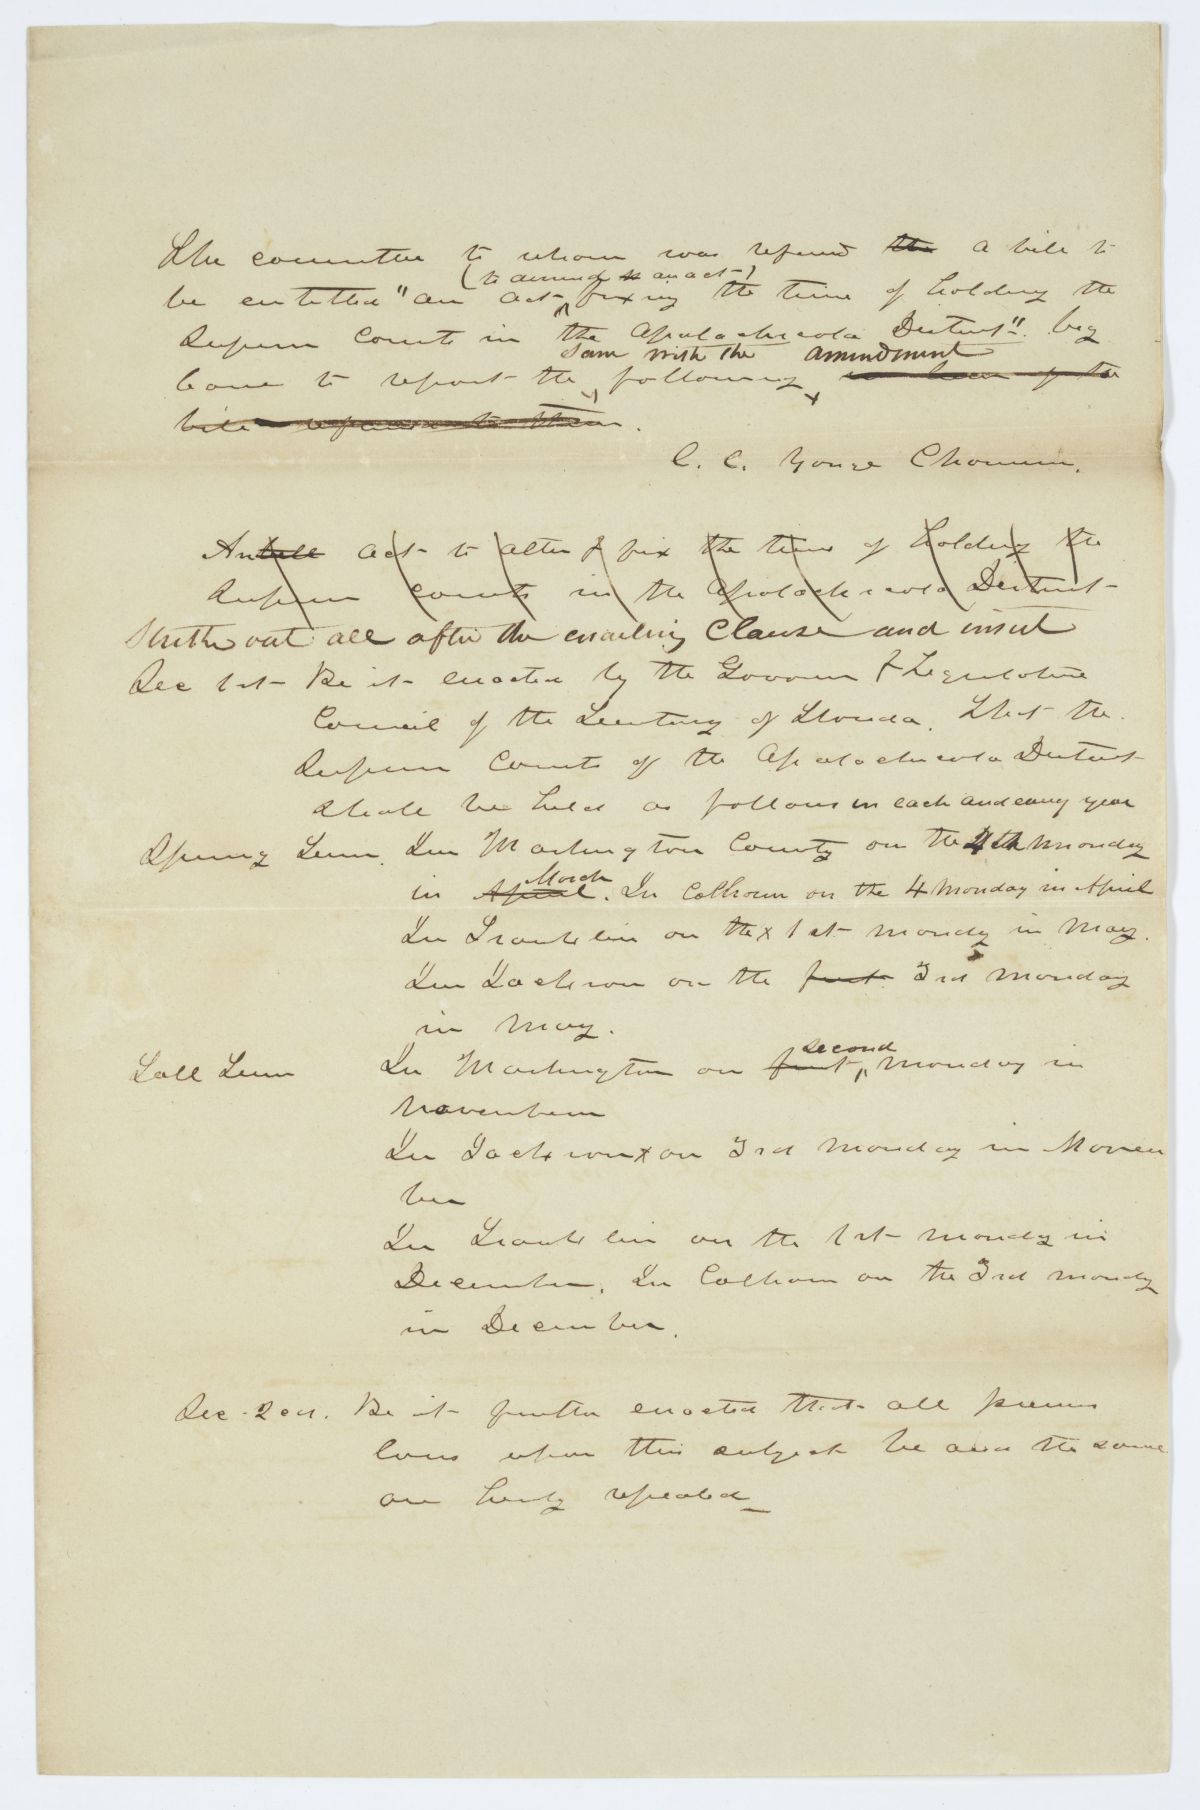 The committee to whom was referred the a bill to
(to amend an act)
be entitled "an act fixing the time of holding the
Superior Courts in the Apalachicola District" beg
same with the amendment
leave to report the following in lieu of the
bill referred to them.
C. C. Yonge Chairman.
An bill act to alter & fix the time of holding the
Superior Courts in the Apalachicola District
Strike out all after the enacting Clause and insert
Sec 1st Be it enacted by the Governor & Legislative
Council of the Territory of Florida. That the
Superior Courts of the Apalachicola District
shall be held as follows in each and every year
Spring Term. In Washington County on the 4th Monday
March
in April. In Calhoun on the 4 Monday in April
In Franklin on the 1st Monday in May.
In Jackson on the first 3rd Monday
in May.
second
Fall Term In Washington on first Monday in
November
In Jackson on 3rd Monday in Novem
ber
In Franklin on the 1st Monday in
December. In Calhoun on the 3rd Monday
in December.
Sec. 2nd. Be it further enacted that all previous
laws upon this subject be and the same
are hereby repealed